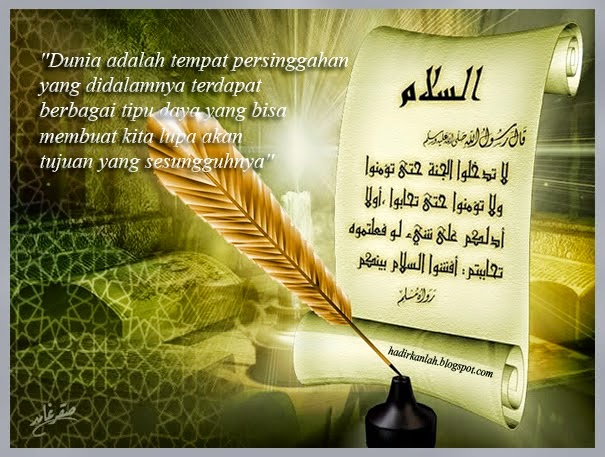 "Dunia adalah tempat persinggahan
yang didalamnya terdapat
berbagai tipu daya yang bisa
membuat kita lupa akan
tujuan yang sesungguhnya"
السلام
قال رسول الله صلى الله عليه وسلم
لا تدخلوا الجنة حتى تؤمنوا
ولا تؤمنوا حتى تحابوا ،أولا
أدلكم على شيء لو فعلتموه
تحاببتم: أفشوا السلام بينكم
رواه مسلم
hadirkanlah.blogspot.com